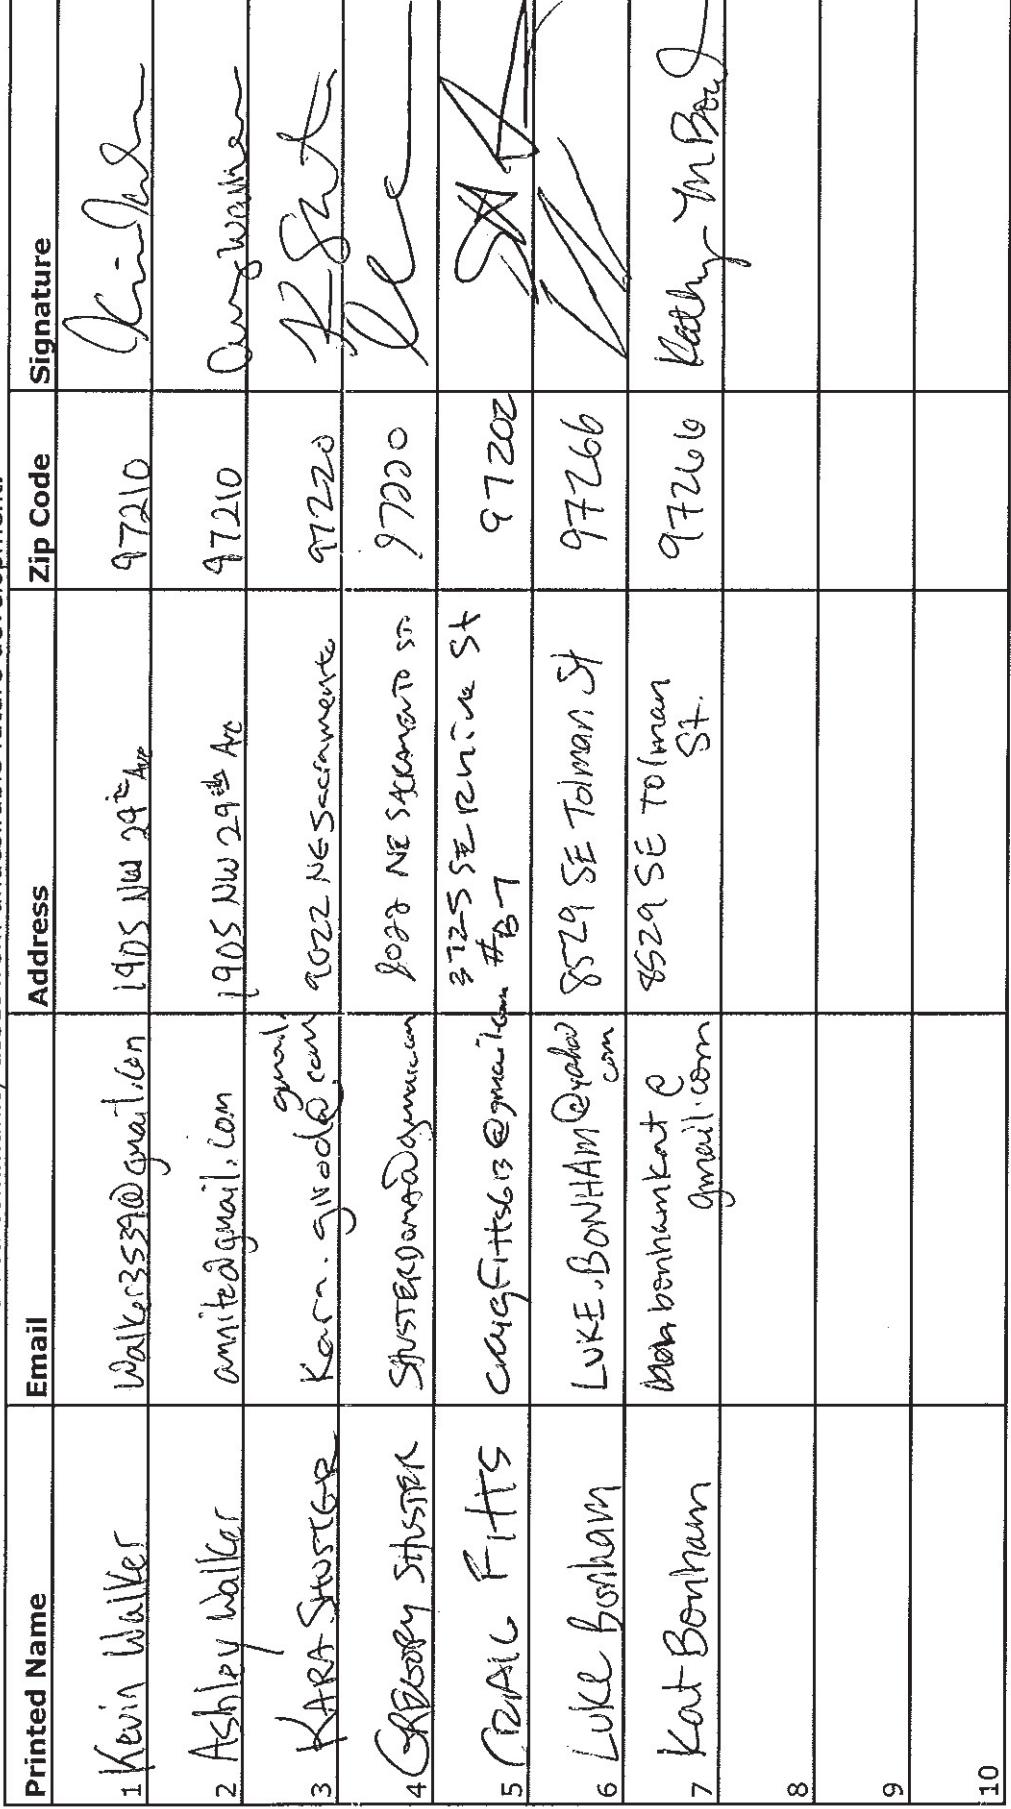 Printed Name Email Address Zip Code Signature
1 Kevin Walker Walker3539@gmail.com 1905 NW 29th Ave 97210
2 Ashley Walker amite@gmail.com 1905 NW 29th Ave 97210
gmail.
3 KARA SHUSTER Kara.girod@com 9022 NE Sacramento 97220
4 GREGORY SHUSTER SHUSTERDOMA@gmail.com 9022 NE SACRAMENTO ST. 97220
5 CRAIG Fitts craigFitts613@gmail.com 3725 SE Rhine St 97202
#B7
6 Luke Bonham LUKE.BONHAM@yahoo 8529 SE Tolman St 97266
com
7 Kat Bonham bonhamkat@ 8529 SE Tolman 97266 Kathy M
gmail.com St.
8
9
10